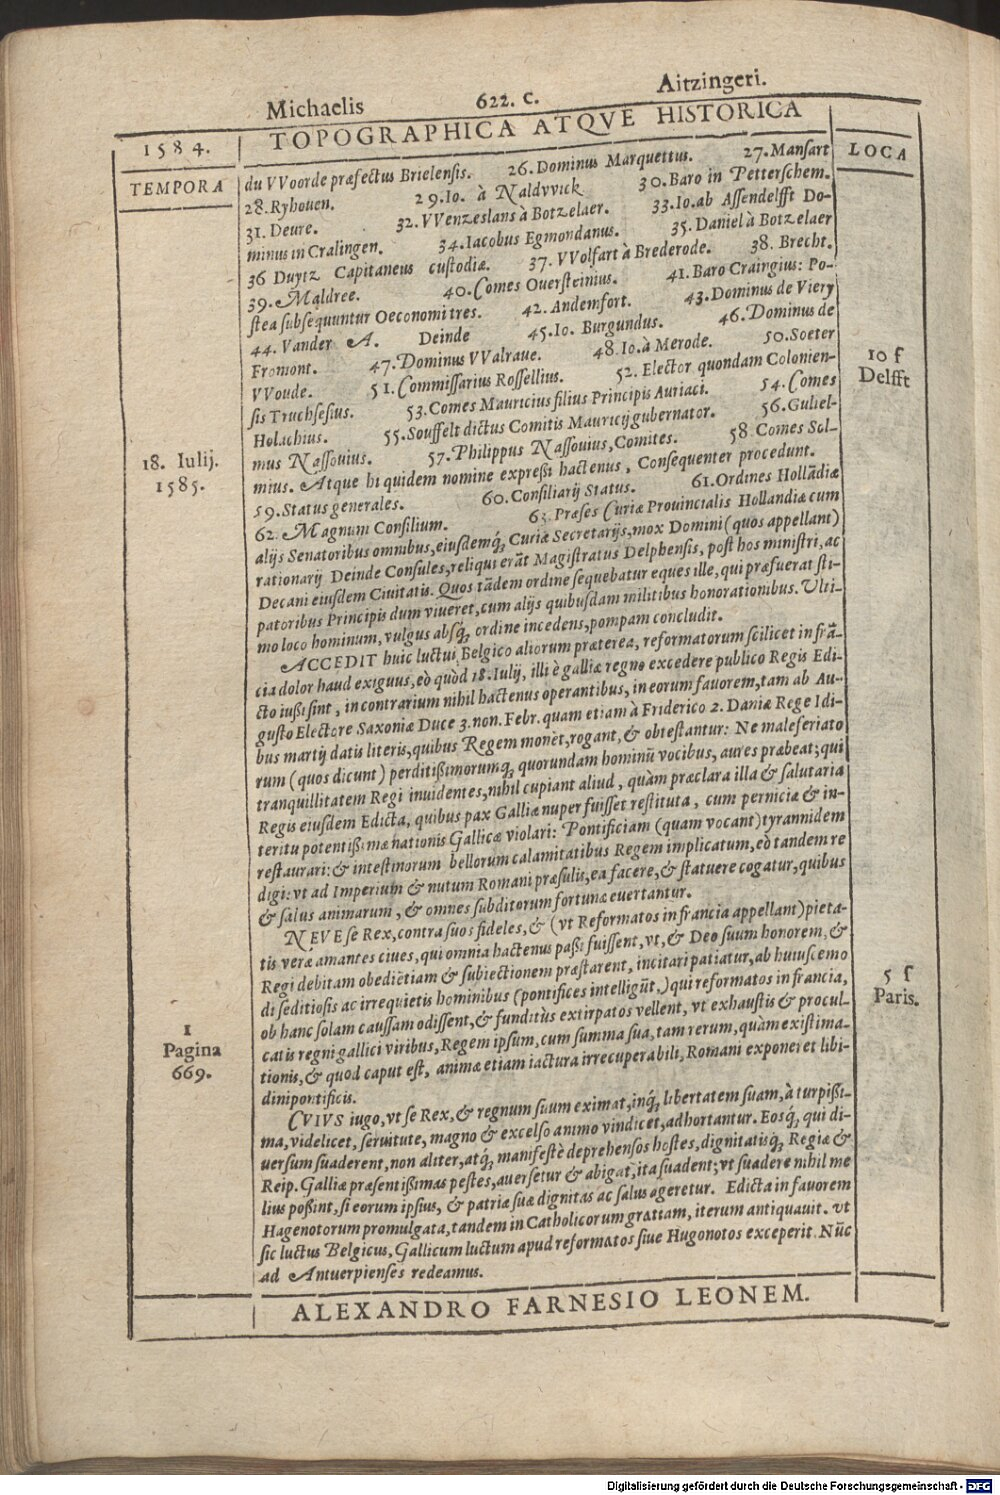 Michaelis 622. C. Aitzingeri.
TOPOGRAPHICA ATQVE HISTORICA
1584.
TEMPORA
LOCA
du VVoorde præfectus Brielensis. 26. Dominus Marquettus. 27. Mansart
28. Ryhouen. 29. Io. à Naldvvick 30. Baro in Petterschem.
31. Deure. 32. VVenzeslans à Botzelaer. 33. Io. ab Assendelfft Do-
minus in Cralingen. 34. Iacobus Egmondanus. 35. Daniel à Botzelaer
36 Duytz Capitaneus custodiæ. 37. VVolfart à Brederode. 38. Brecht.
39. Maldree. 40. Comes Ouersteinius. 41. Baro Craingius: Po-
stea subsequuntur Oeconomi tres. 42. Andemfort. 43. Dominus de Viery
44. Vander A. Deinde 45. Io. Burgundus. 46. Dominus de
Fromont. 47. Dominus VValraue. 48. Io. à Merode. 50. Soeter
VVoude. 51. Commissarius Rossellius. 52. Elector quondam Colonien-
sis Truchsesius. 53. Comes Mauricius filius Principis Auriaci. 54. Comes
Holachius. 55. Souffelt dictus Comitis Mauricij gubernator. 56. Guliel-
mus Nassouius. 57. Philippus Nassouius, Comites. 58 Comes Sol-
mius. Atque hi quidem nomine expreßi hactenus, Consequenter procedunt.
59. Status generales. 60. Consiliarij Status. 61. Ordines Hollādiæ
62. Magnum Consilium. 63. Præses Curiæ Prouincialis Hollandiæ cum
alijs Senatoribus omnibus, eiusdemq́; Curiæ Secretarijs, mox Domini (quos appellant)
rationarij Deinde Consules, reliqui erāt Magistratus Delphensis, post hos ministri, ac
Decani eiusdem Ciuitatis. Quos tādem ordine sequebatur eques ille, qui præfuerat sti-
patoribus Principis dum viueret, cum alijs quibusdam militibus honorationibus. Ulti-
mo loco hominum, vulgus absq́; ordine incedens, pompam concludit.
ACCEDIT huic luctui Belgico aliorum præterea, reformatorum scilicet in frā-
cia dolor haud exiguus, eò quòd 18. Iulij, illi è galliæ regno excedere publico Regis Edi-
cto iußi sint, in contrarium nihil hactenus operantibus, in eorum fauorem, tam ab Au-
gusto Electore Saxoniæ Duce 3. non. Febr. quam etiam à Friderico 2. Daniæ Rege Idi-
bus martij datis literis, quibus Regem monēt, rogant, & obtestantur: Ne maleferiato
rum (quos dicunt) perditißimorumq́; quorundam hominū vocibus, aures præbeat; qui
tranquillitatem Regi inuidentes, nihil cupiant aliud, quàm præclara illa & salutaria
Regis eiusdem Edicta, quibus pax Galliæ nuper fuisset restituta, cum pernicia & in-
teritu potentißimæ nationis Gallicæ violari: Pontificiam (quam vocant) tyrannidem
restaurari: & intestinorum bellorum calamitatibus Regem implicatum, eò tandem re
digi: vt ad Imperium & nutum Romani præsulis, ea facere, & statuere cogatur, quibus
& salus animarum, & omnes subditorum fortunæ euertantur.
NEVE se Rex, contra suos fideles, & (vt Reformatos in francia appellant) pieta-
tis veræ amantes ciues, qui omnia hactenus paßi fuissent, vt, & Deo suum honorem, &
Regi debitam obedietiam & subiectionem præstarent, incitari patiatur, ab huiuscemo
di seditiosis ac irrequietis hominibus (pontifices intelligūt,) qui reformatos in francia,
ob hanc solam caussam odissent, & funditùs extirpatos vellent, vt exhaustis & procul-
catis regni gallici viribus, Regem ipsum, cum summa sua, tam rerum, quàm existima-
tionis, & quod caput est, animæ etiam iactura irrecuperabili, Romani exponeret libi-
dini pontificis.
CVIVS iugo, vt se Rex, & regnum suum eximat, inq́; libertatem suam, à turpißi-
ma, videlicet, seruitute, magno & excelso animo vindicet, adhortantur. Eosq́; qui di-
uersum suaderent, non aliter, atq́; manifestè deprehensos hostes, dignitatisq́; Regiæ &
Reip. Galliæ præsentißimas pestes, auersetur & abigat, ita suadent; vt suadere nihil me
lius poßint, si eorum ipsius, & patriæ suæ dignitas ac salus ageretur. Edicta in fauorem
Hagenotorum promulgata, tandem in Catholicorum gratiam, iterum antiquauit. vt
sic luctus Belgicus, Gallicum luctum apud reformatos siue Hugonotos exceperit. Nūc
ad Antuerpienses redeamus.
18. Iulij.
1585.
1
Pagina
669.
10 f
Delfft
5 f
Paris.
ALEXANDRO FARNESIO LEONEM.
Digitalisierung gefördert durch die Deutsche Forschungsgemeinschaft - DFG